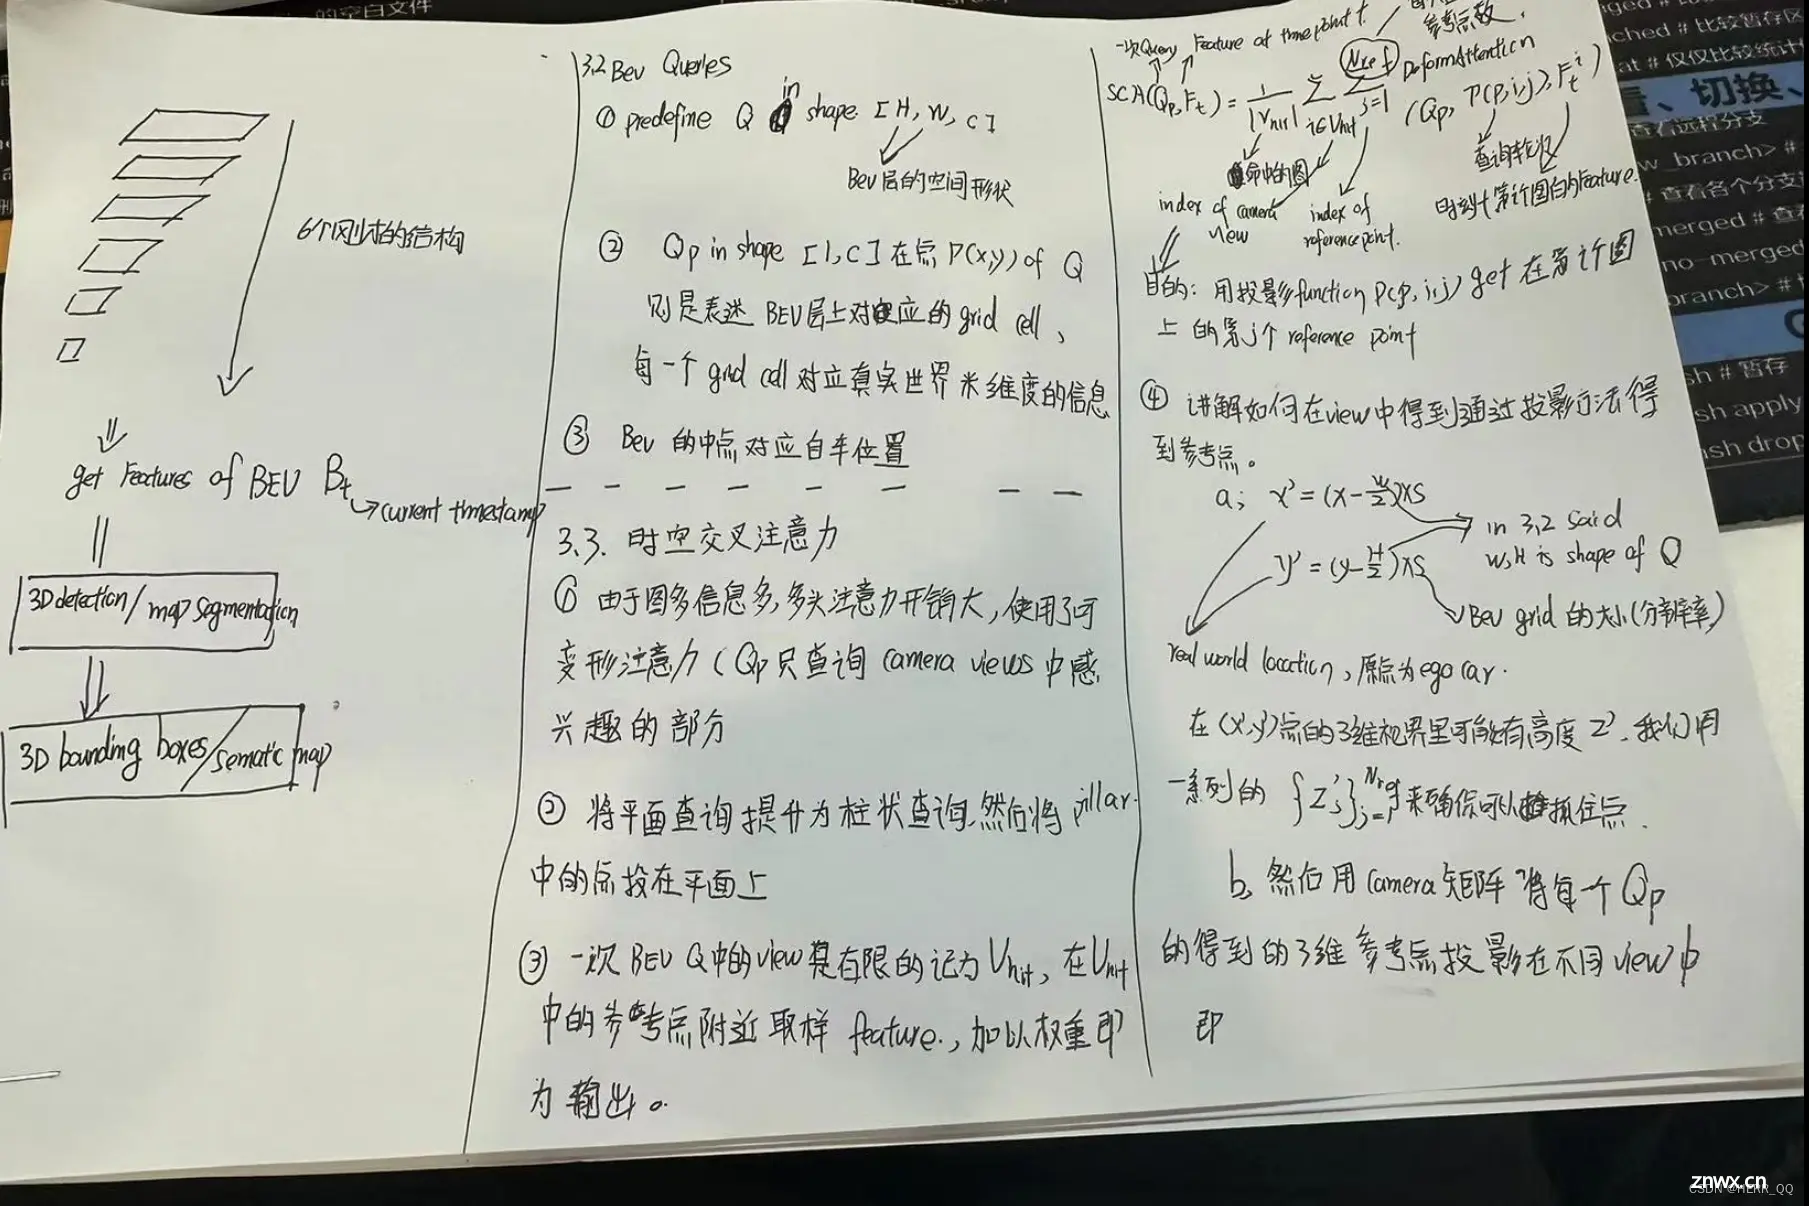 的空白文件
6个刚才的结构
get Features of BEV Bt
current timestamp
3D detection / map segmentation
3D bounding boxes / sematic map
3.2 Bev Queries
① predefine Q in shape [H, W, C]
Bev层的空间形状
② Qp in shape [1, C] 在点 P(x,y) of Q
则是表述 BEV层上对应的 grid cell,
每一个 grid cell 对应真实世界米维度的信息
③ Bev 的中点对应自车位置
3.3. 时空交叉注意力
① 由于图多信息多,多头注意力开销大,使用了可
变形注意力 (Qp 只查询 camera views 中感
兴趣的部分
② 将平面查询提升为柱状查询,然后将 pillar
中的点投在平面上
③ 一次 BEV Q中的view是有限的记为 Vhit, 在Vhit
中的参考点附近取样 feature., 加以权重即
为输出。
参考点数.
一次Query Feature at timepoint t.
SCA(Qp, Ft) = 1/|Vhit| Σ i∈Vhit Σ j=1 Nref DeformAttention
(Qp, P(p,i,j), Ft^i)
命中的图
查询轮次
index of camera view
index of reference point.
时刻t第i个图的Feature.
目的: 用投影function P(p,i,j) get 在第i个图
上的第j个 reference point
④ 讲解如何在view中得到通过投影方法得
到参考点。
a; x' = (x-W/2)×S
y' = (y-H/2)×S
in 3.2 said
W,H is shape of Q
Bev grid 的大小(分辨率)
real world location, 原点为ego car.
在(x',y')点的3维视界里可能有高度 z', 我们用
一系列的 {Z'j}j=1 Nref 来确保可以抓住点.
b, 然后用 Camera矩阵 将每一个 Qp
的得到的3维参考点投影在不同view中
即
ched # 比较暂存区
at # 仅仅比较统计
、切换、
查看远程分支
w_branch> #
# 查看各个分支
merged # 查看
no-merged
branch> #
sh # 暂存
sh apply
ash drop
znwx.cn
CSDN @HERR_QQ